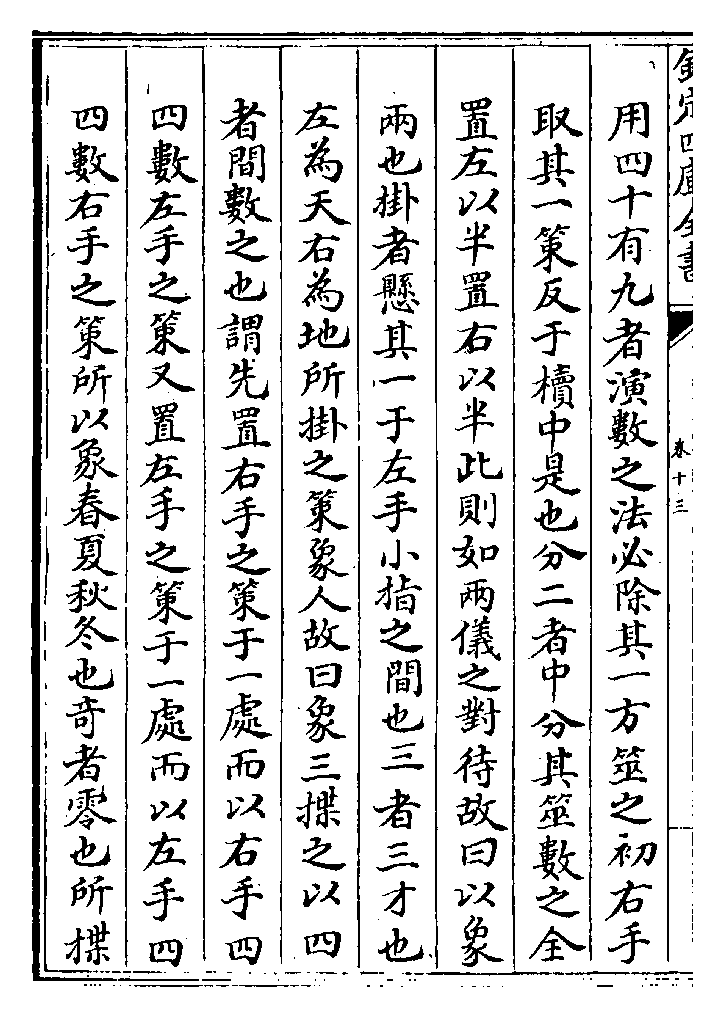 欽定四庫全書
卷十三
用四十有九者演數之法必除其一方筮之初右手
取其一策反于櫝中是也分二者中分其筮數之全
置左以半置右以半此則如兩儀之對待故曰以象
兩也掛者懸其一于左手小指之間也三者三才也
左為天右為地所掛之策象人故曰象三揲之以四
者間數之也謂先置右手之策于一處而以右手四
四數左手之策又置左手之策于一處而以左手四
四數右手之策所以象春夏秋冬也奇者零也所揲